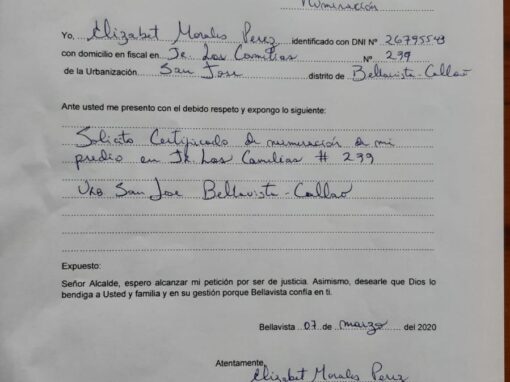 Numeración
Yo, Elizabet Morales Perez identificado con DNI Nº 26795549
con domicilio en fiscal en Jr. Las Camilias Nº 299
de la Urbanización San Jose distrito de Bellavista-Callao
Ante usted me presento con el debido respeto y expongo lo siguiente:
Solicito Certificado de numeración de mi
predio en Jr. Las Camilias # 299
Urb San Jose Bellavista-Callao
Expuesto:
Señor Alcalde, espero alcanzar mi petición por ser de justicia. Asimismo, desearle que Dios lo
bendiga a Usted y familia y en su gestión porque Bellavista confía en ti.
Bellavista 07 de marzo del 2020
Atentamente,
Elizabet Morales Perez